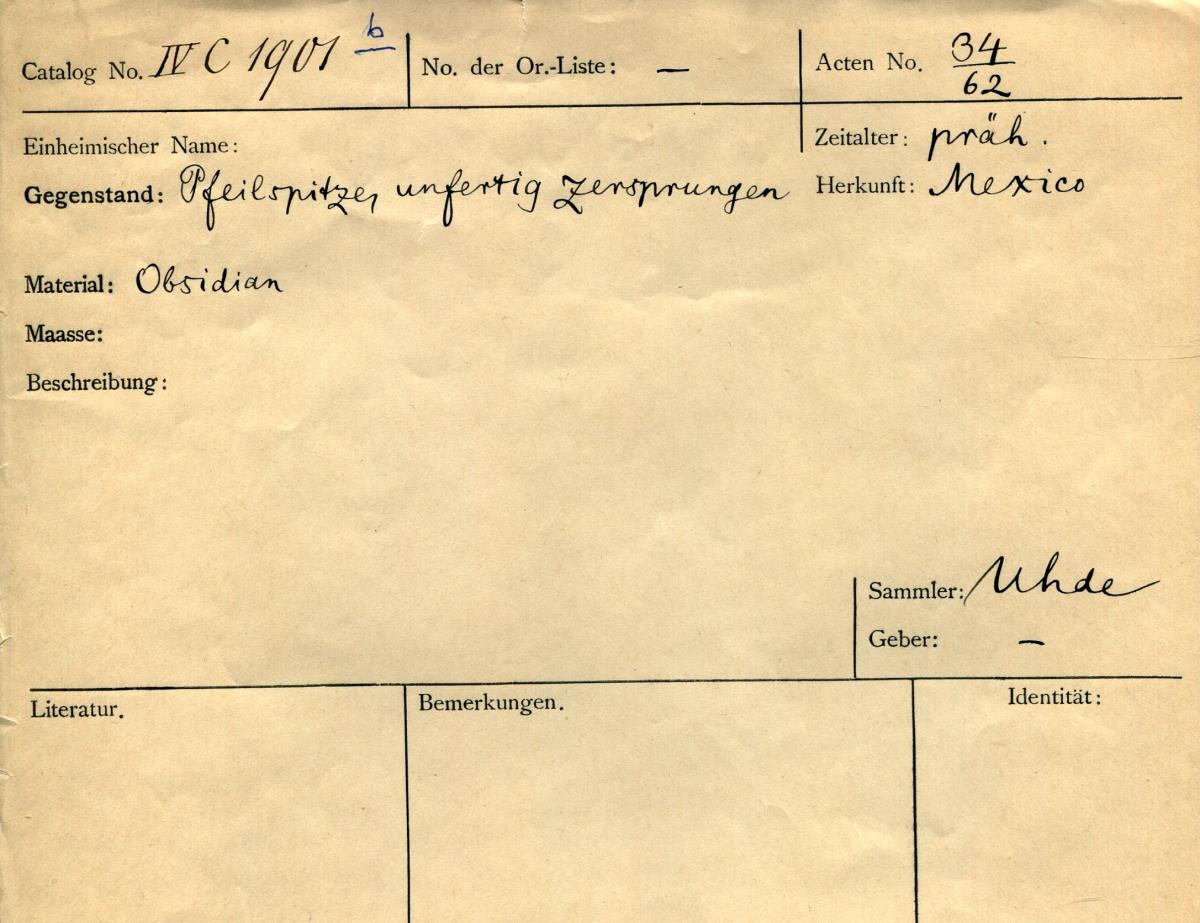 Catalog No. IV C 1901 b
No. der Or.-Liste: —
Acten No. 34/62
Einheimischer Name:
Zeitalter: präh.
Gegenstand: Pfeilspitze, unfertig zersprungen
Herkunft: Mexico
Material: Obsidian
Maasse:
Beschreibung:
Sammler: Uhde
Geber: —
Literatur.
Bemerkungen.
Identität: